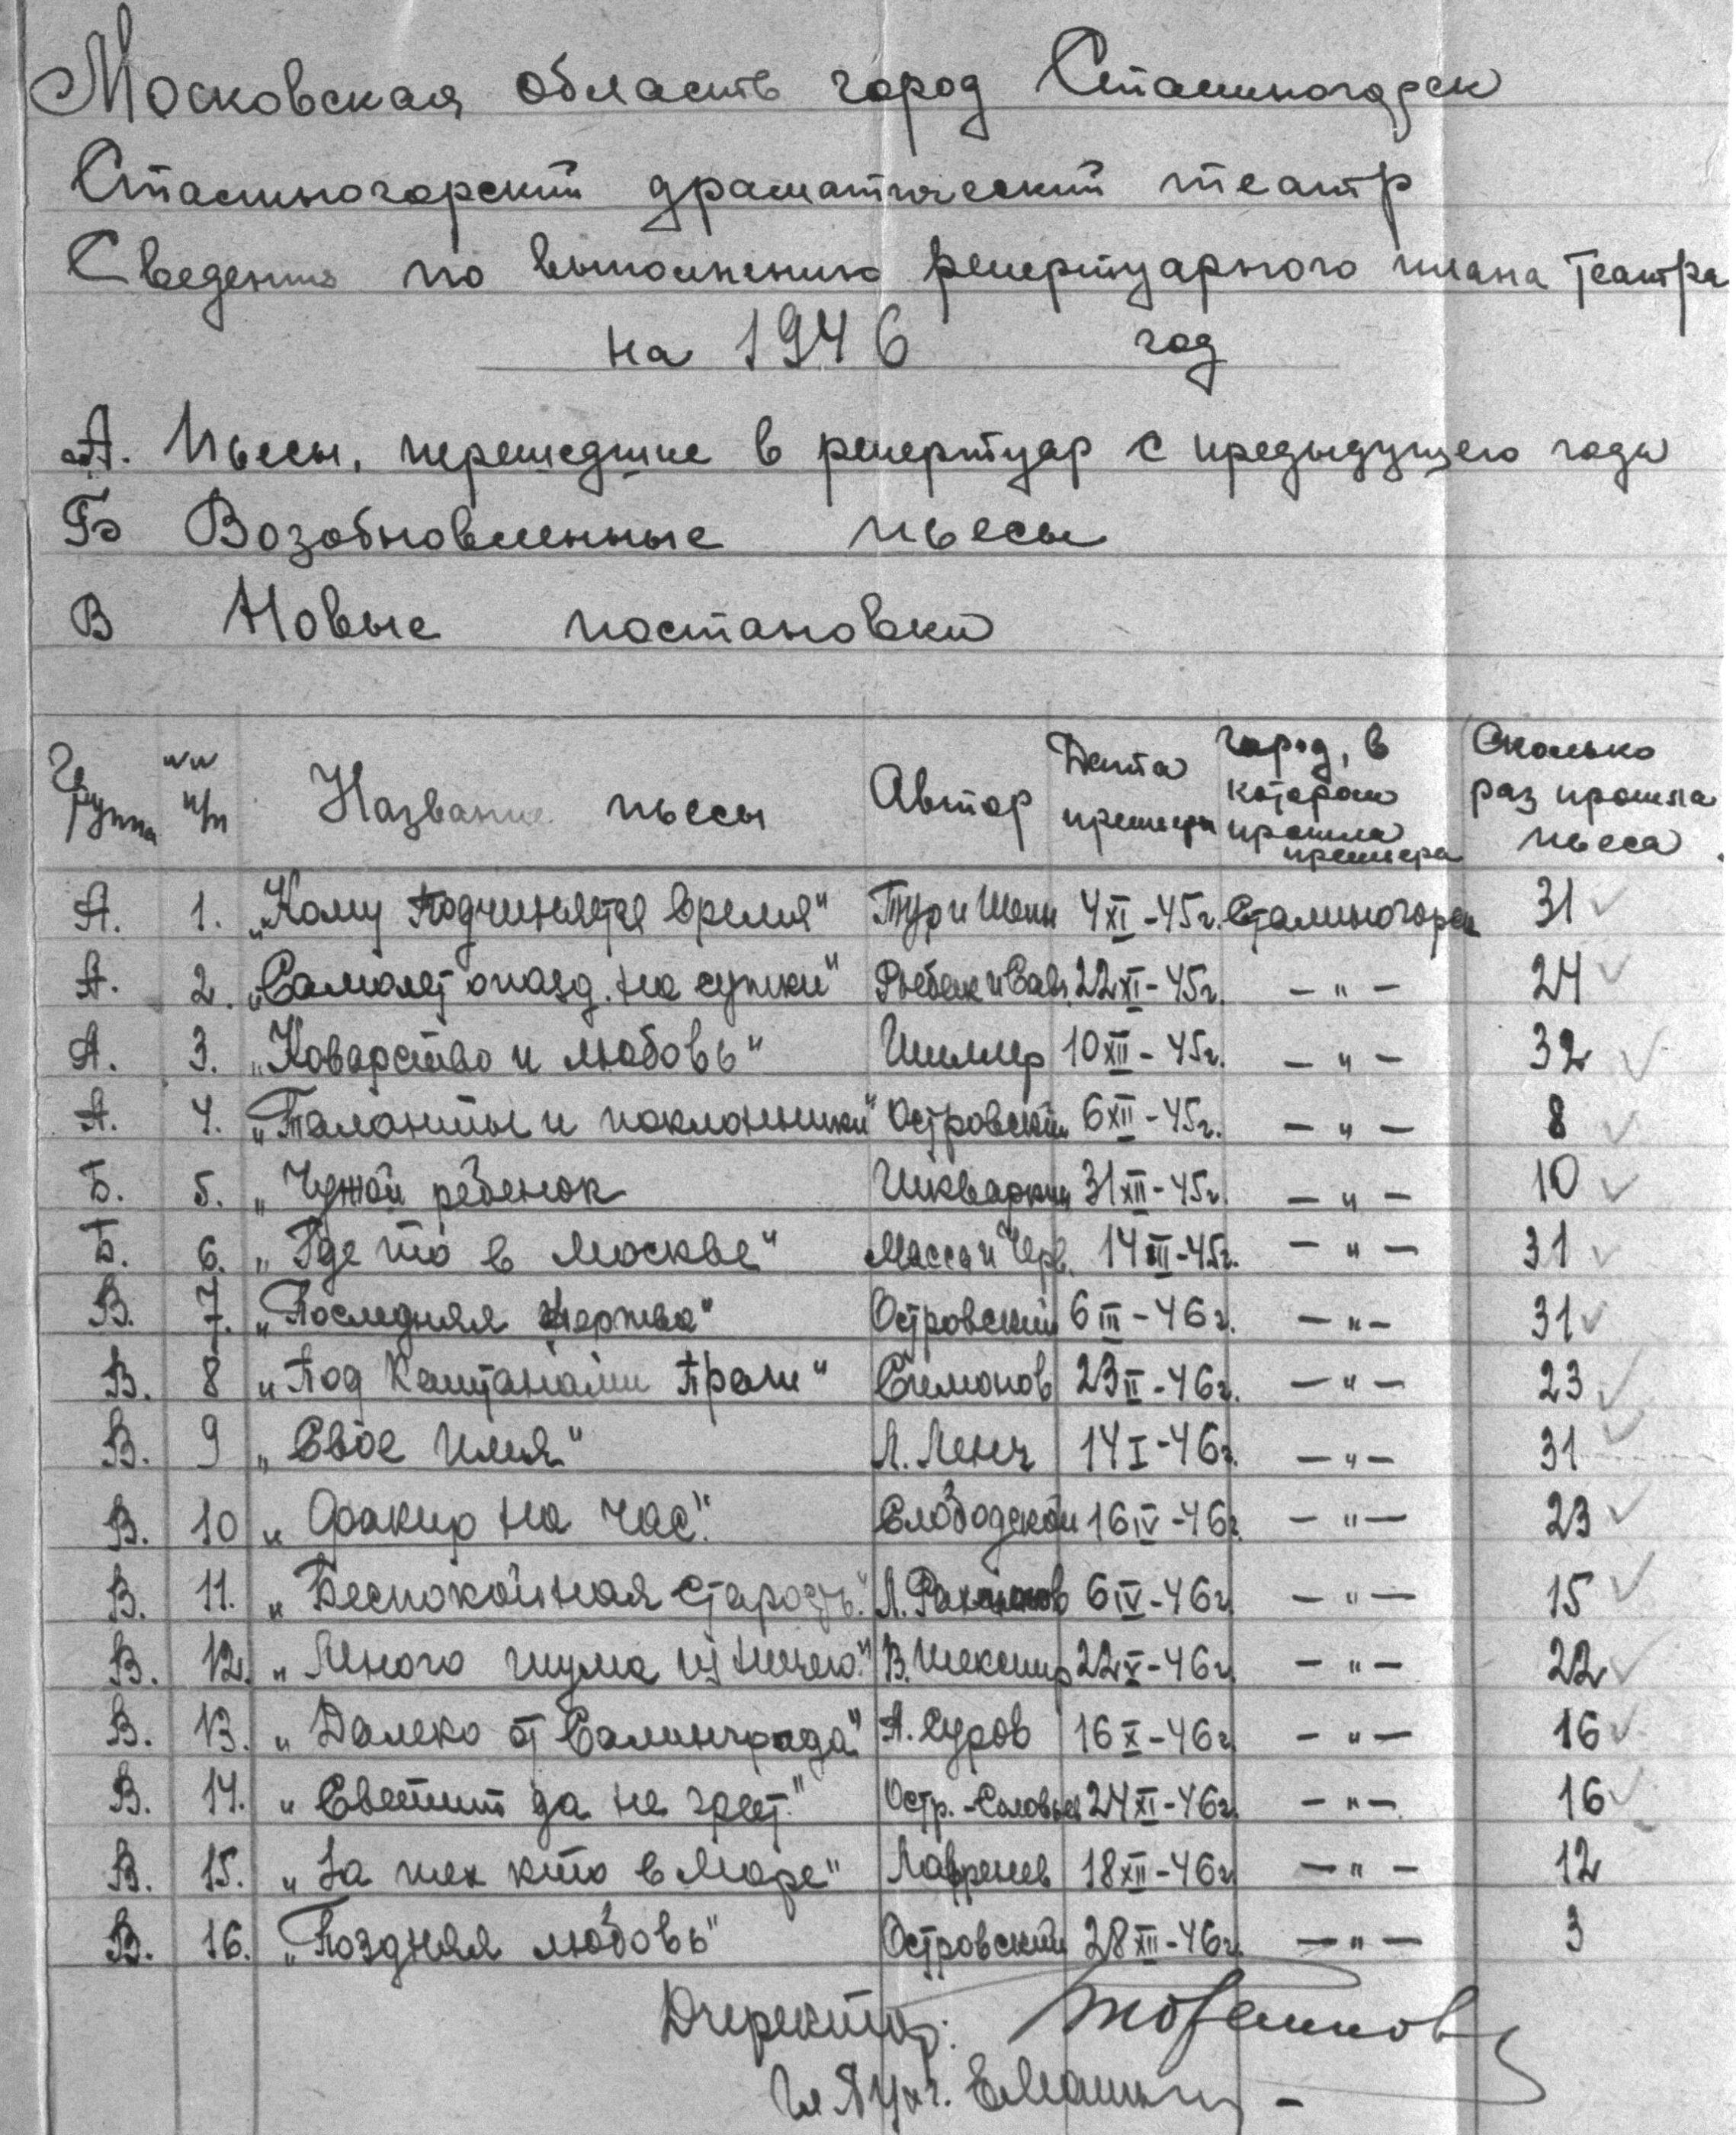 Московская область город Сталиногорск
Сталиногорский драматический театр
Сведения по выполнению репертуарного плана театра
на 1946 год
А. Пьесы, перешедшие в репертуар с предыдущего года
Б Возобновленные пьесы
В Новые постановки
Группа №№ п/п Название пьесы Автор Дата премьеры Город, в котором прошла премьера Сколько раз прошла пьеса
А. 1. „Кому подчиняется время" Тур и Шейн 4 XI - 45г. Сталиногорск 31
А. 2. „Самолет опазд. на сутки" Рыбак и Савч. 22 XI - 45г. — " — 24
А. 3. „Коварство и любовь" Шиллер 10 XII - 45г. — " — 32
А. 4. „Таланты и поклонники" Островский 6 XII - 45г. — " — 8
Б. 5. „Чужой ребенок Шкваркин 31 XII - 45г. — " — 10
Б. 6. „Где то в Москве" Масс и Черв. 14 III - 45г. — " — 31
В. 7. „Последняя жертва" Островский 6 III - 46г. — " — 31
В. 8 „Под каштанами Праги" Симонов 23 II - 46г. — " — 23
В. 9 „Свое имя" Л. Ленч 14 I - 46г. — " — 31
В. 10 „Факир на час". Слободской 16 IV - 46г. — " — 23
В. 11. „Беспокойная старость." Л. Рахманов 6 IV - 46г. — " — 15
В. 12. „Много шума из ничего." В. Шекспир 22 V - 46г. — " — 22
В. 13. „Далеко от Салинграда" А. Суров 16 X - 46г. — " — 16
В. 14. „Светит да не греет." Остр.-Соловьев 24 XI - 46г. — " — 16
В. 15. „За тех кто в Море" Лавренев 18 XII - 46г. — " — 12
В. 16. „Поздняя любовь" Островский 28 XII - 46г. — " — 3
Директор:
Гл Бухг.